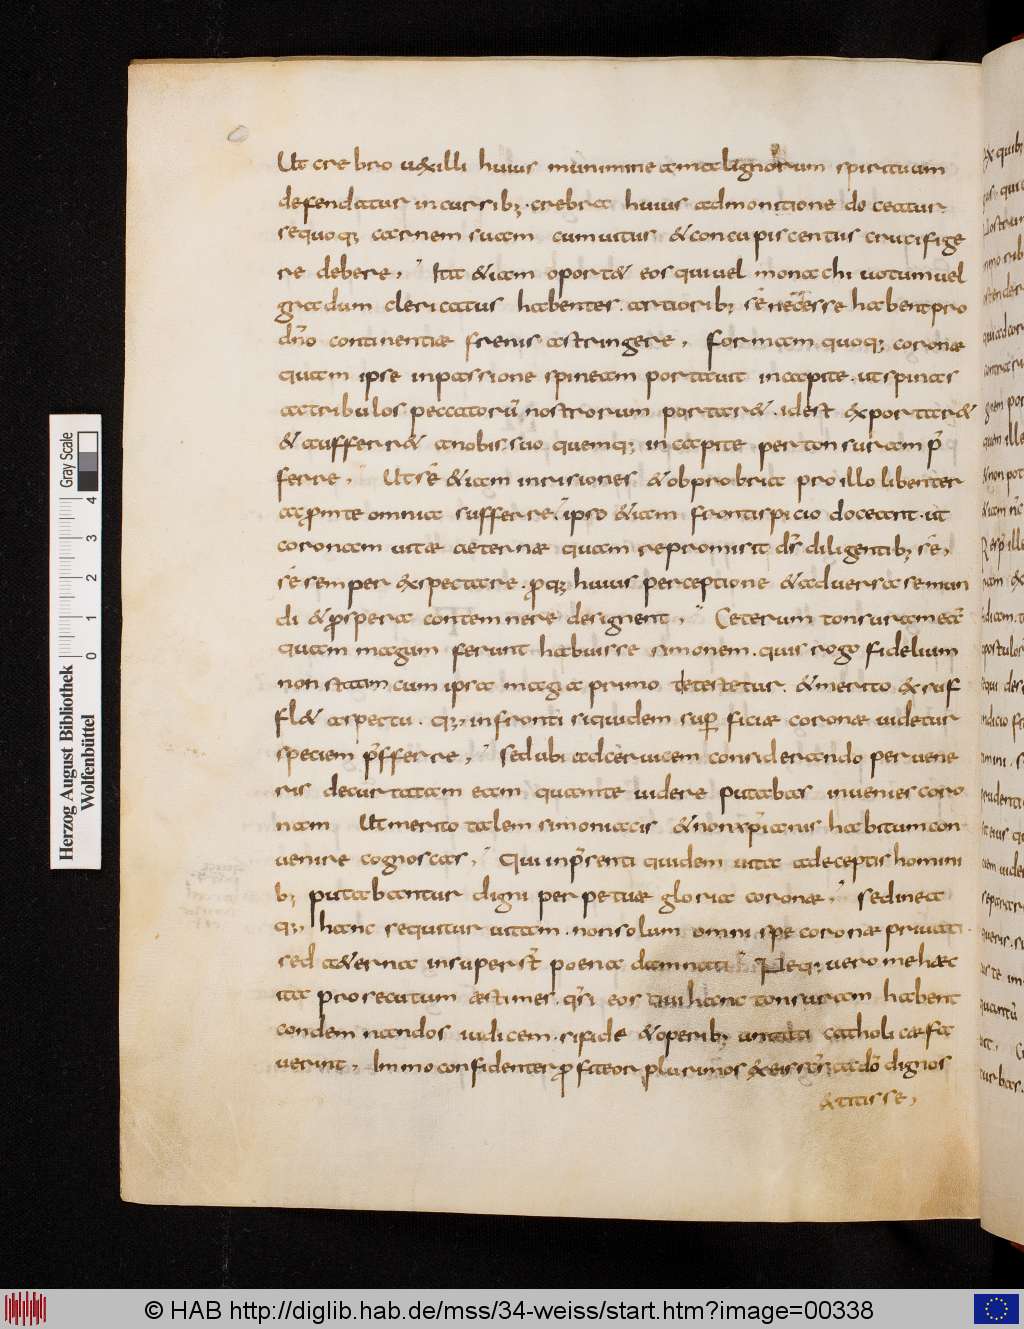 Ut crebro uexilli huius munimine a malignorum spirituum
defendatur incursib; · crebra huius admonitione doceatur
se quoq; carnem suam cum uitiis & concupiscentiis crucifige
re debere, Ita & iam oport& eos qui uel monachi uotum uel
gradum clericatus habentes · artiorib; se necesse habent pro
dno continentiae frenis astringere, Formam quoq; coronae
quam ipse in passione spineam portauit in capite · ut spinas
ac tribulos peccatorū nostrorum portar& · id est exportar&
& auferr& a nobis; suo quemq; in capite per tonsuram p̄
ferre, Ut se & iam inrisiones & obprobria pro illo libenter
ac prompte omnia sufferre · ipso & iam frontispicio doceant · ut
coronam uitae aeternae quam repromisit ds diligentib; se,
se semper expectare · proq; huius perceptione & aduersa se mun
di & prospera contemnere designent, Ceterum tonsuram eā
quam magum ferunt habuisse simonem · quis rogo fidelium
non statim cum ipsa magia primo detestetur · & merito & suf
fl& aspectu · quae in fronti siquidem superficiae coronae uidetur
speciem p̄fferre, Sed ubi ad ceruicem considerando perueñe
ris decurtatam eam quam te uidere putabas inuenies coro
nam Ut merito talem simoniacis & non xp̄ianis habitum con
uenire cognoscas, Qui in p̄senti quidem uita a deceptis homini
b; putabantur digni perpetuae gloria coronae, Sed in ea
quae hanc sequitur uitam · non solum omni spe coronae priuati ·
sed aeterna insuper st̄ poena damnati Neq; uero me haec
ita prosecutum aestimes · quasi eos qui hanc tonsuram habent
condemnandos iudicem · si fide & operib; unitati catholicae fa
uerint, Immo confidenter profiteor plurimos ex eis scōs ac dō dignos
extitisse,
Gray Scale
4
3
2
1
0
Herzog August Bibliothek
Wolfenbüttel
© HAB http://diglib.hab.de/mss/34-weiss/start.htm?image=00338